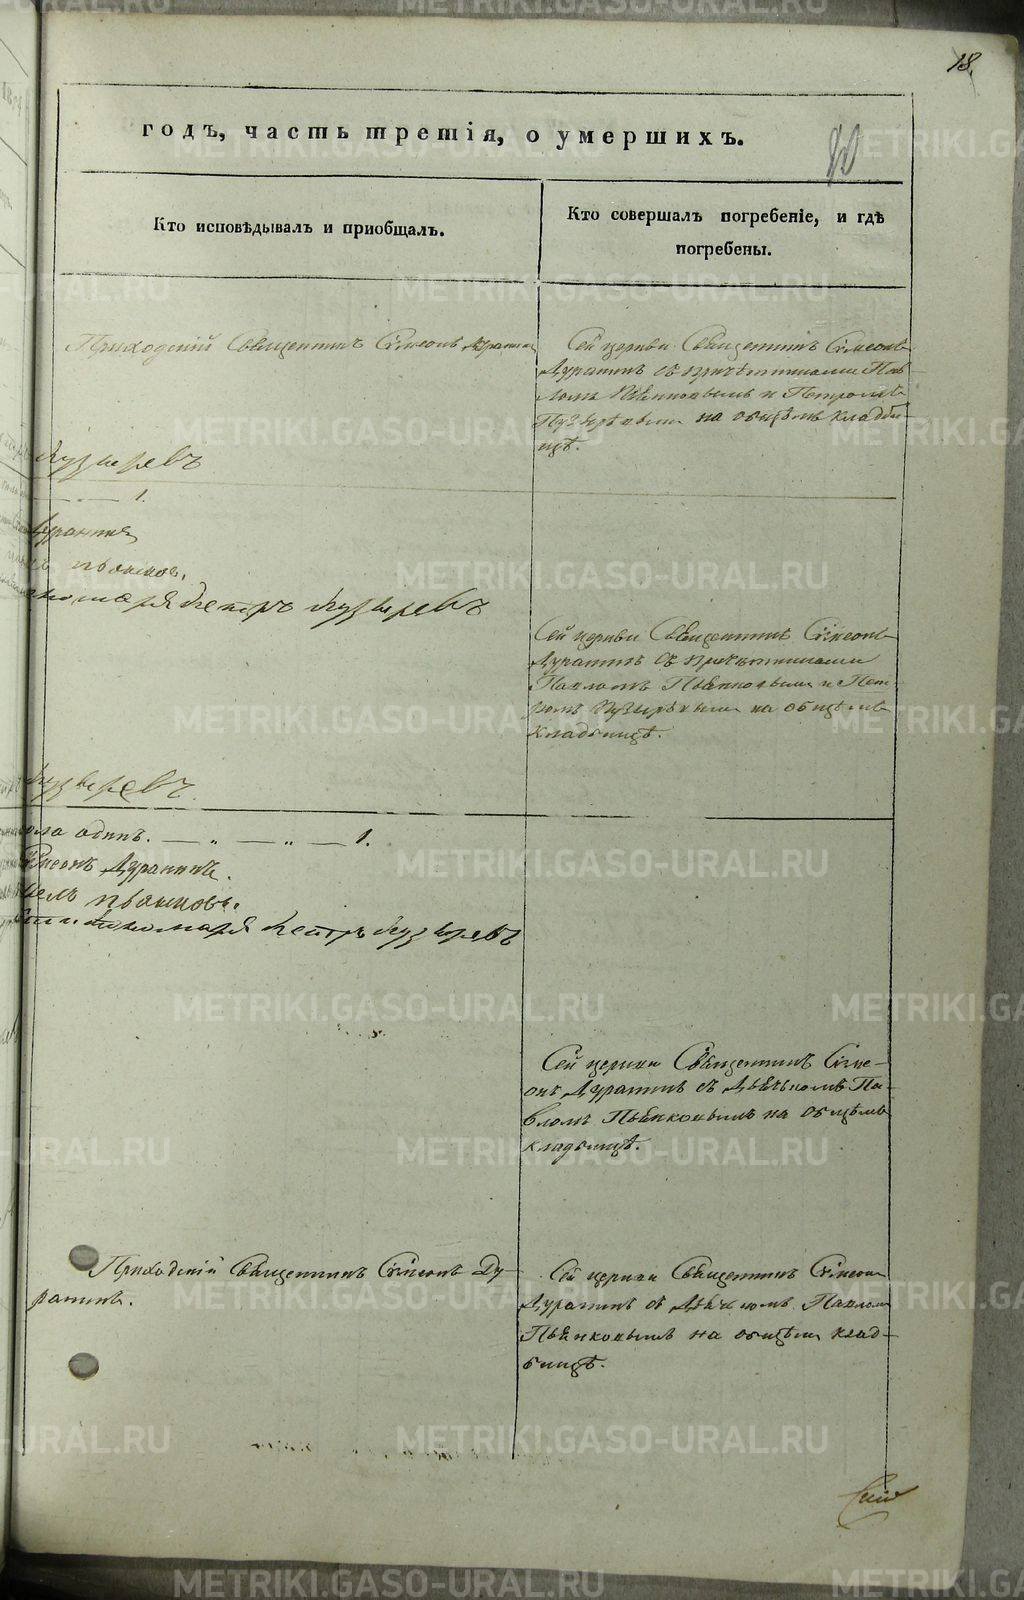 18.
годъ, часть третія, о умершихъ.
Кто исповѣдывалъ и приобщалъ.
Кто совершалъ погребеніе, и гдѣ
погребены.
Приходскій Священникъ Сѵмеонъ
Сей церкви Священникъ Сѵмеонъ
Дурагинъ съ причетниками Пав-
ломъ Пьянковымъ и Петромъ
Пузыревымъ на общемъ кладби-
щѣ.
Пузыревъ
1.
Дурагинъ
Пьянковъ.
Петръ Пузыревъ
Сей церкви Священникъ Сѵмеонъ
Дурагинъ съ причетниками
Павломъ Пьянковымъ и Пет-
ромъ Пузыревымъ на общемъ
кладбищѣ.
Пузыревъ
пола одинъ. — „ — „ — 1.
Сѵмеонъ Дурагинъ.
Павелъ Пьянковъ.
пономаря Петръ Пузыревъ
Сей церкви Священникъ Сѵме-
онъ Дурагинъ съ Дьячкомъ Па-
вломъ Пьянковымъ на общемъ
кладбищѣ.
Приходскій Священникъ Сѵмеонъ Ду-
рагинъ.
Сей церкви Священникъ Сѵмеонъ
Дурагинъ съ Дьячкомъ Павломъ
Пьянковымъ на общемъ клад-
бищѣ.
METRIKI.GASO-URAL.RU